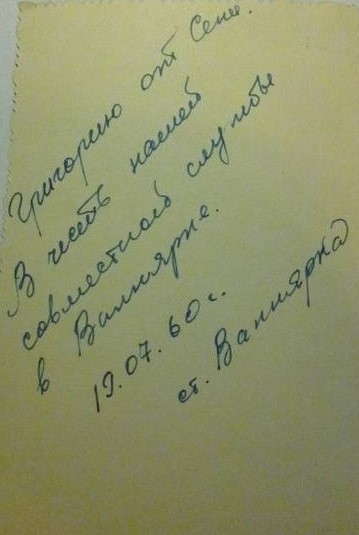 Григорию от Сени.
В честь нашей
совместной службы
в Вапнярке.
19.07.60 г.
ст. Вапнярка